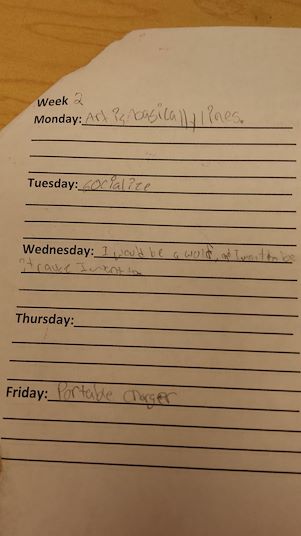 Week 2
Monday: Art is basically lines.
Tuesday: socialize
Wednesday: I would be a wolf, I want to be
it cause I want to
Thursday:
Friday: Portable charger